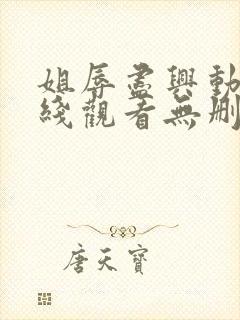 姐辱盡興動
綫觀看無刪
唐天寶